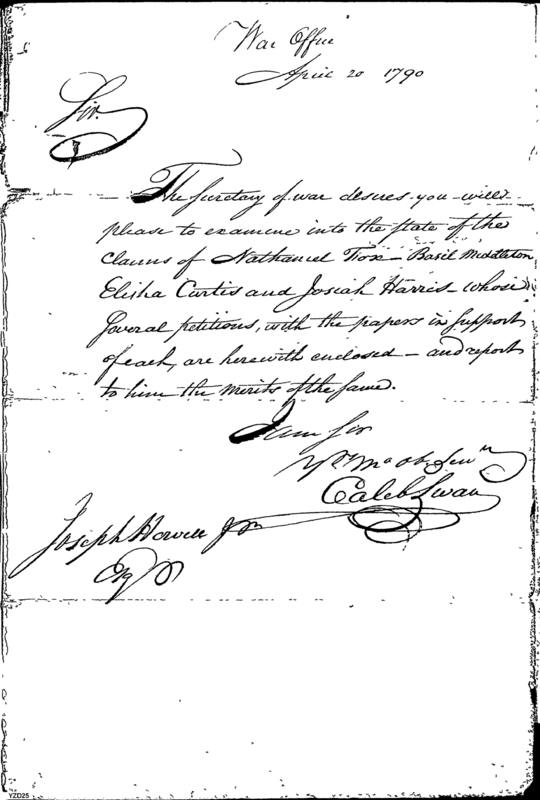 War Office
April 20 1790
Sir.
The Secretary of war desires you will
please to examine into the state of the
claims of Nathaniel Fox - Basil Middleton
Elisha Curtis and Josiah Harris - whose
several petitions, with the papers in support
of each, are herewith enclosed - and report
to him the merits of the same.
I am Sir
Yr. Mo Ob. Servt
Caleb Swan
Joseph Howell Jr
Esqr
YZD25